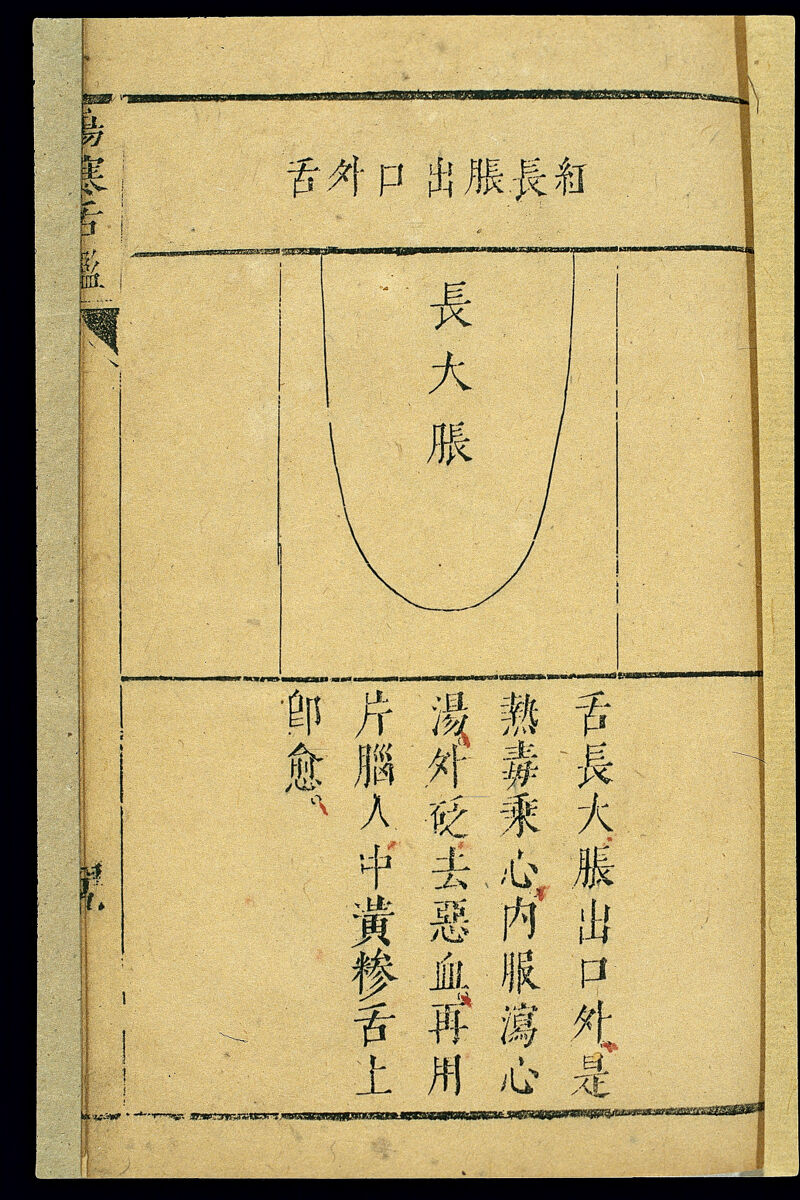 紅長脹出口外舌
長大脹
舌長大脹出口外是
熱毒乘心內服瀉心
湯外砭去惡血再用
片腦人中黃糝舌上
卽愈
傷寒舌鑑